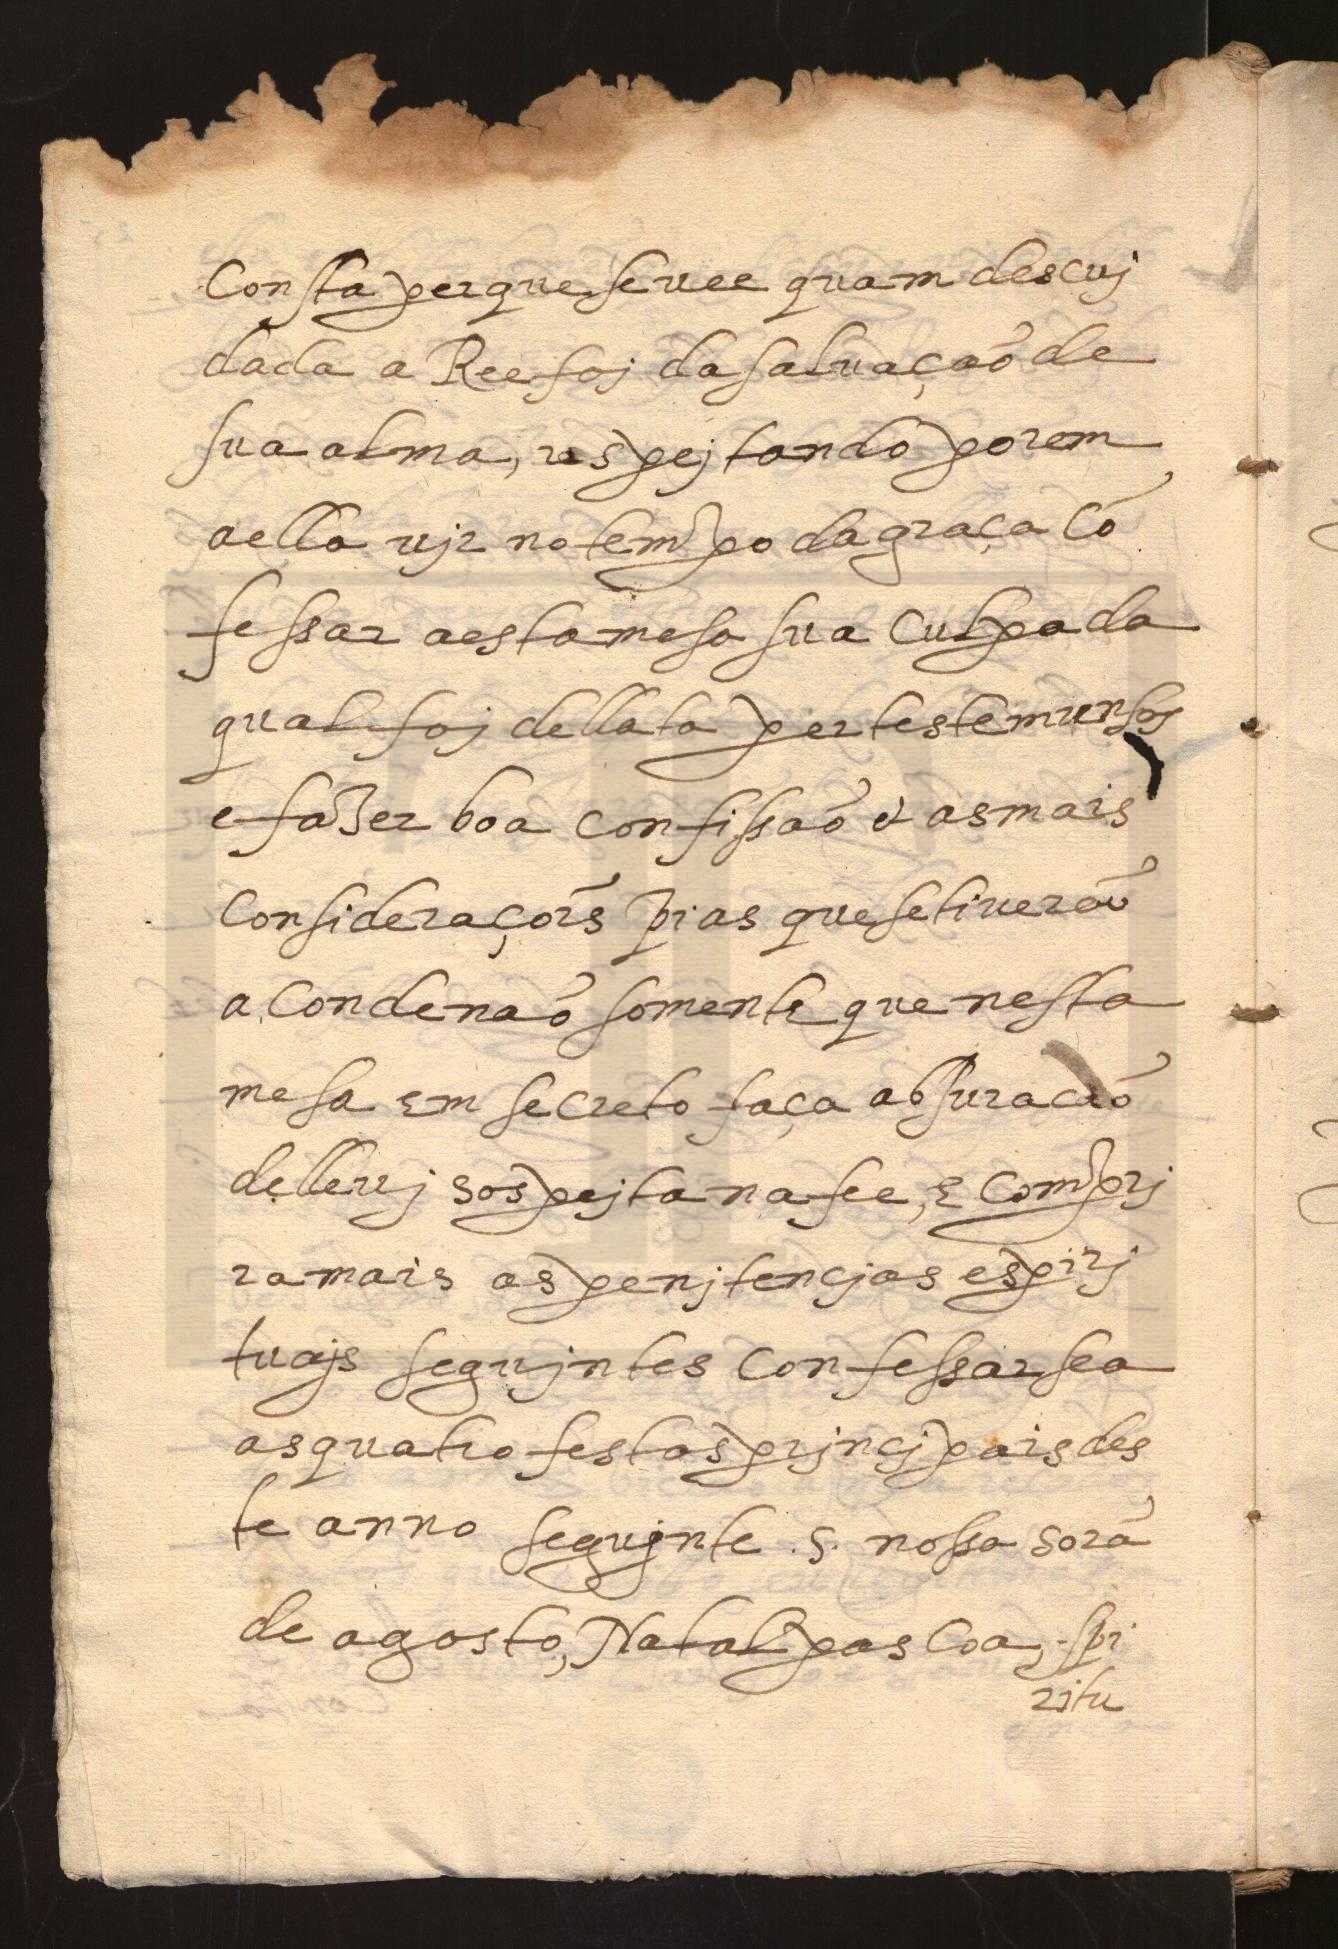 Consta per que se uee quam descuj
dada a Ree foj da saluação de
sua alma, respejtando porem
a ella ujr no tempo da graça cõ
fessar a esta mesa sua culpa da
qual foj dellata per testemunhas
e fazer boa confissaõ & as mais
considerações pias que se tiueraõ
a condenaõ somente que nesta
mesa em secreto faça abjuracaõ
de lleuj sospejta na fee, e compri
ra mais as penjtencjas espirj
tuajs segujntes confessarsea
as quatro festas prjncjpais des
te anno segujnte .s. nossa sorã
de agosto, Natal pascoa, spi
ritu